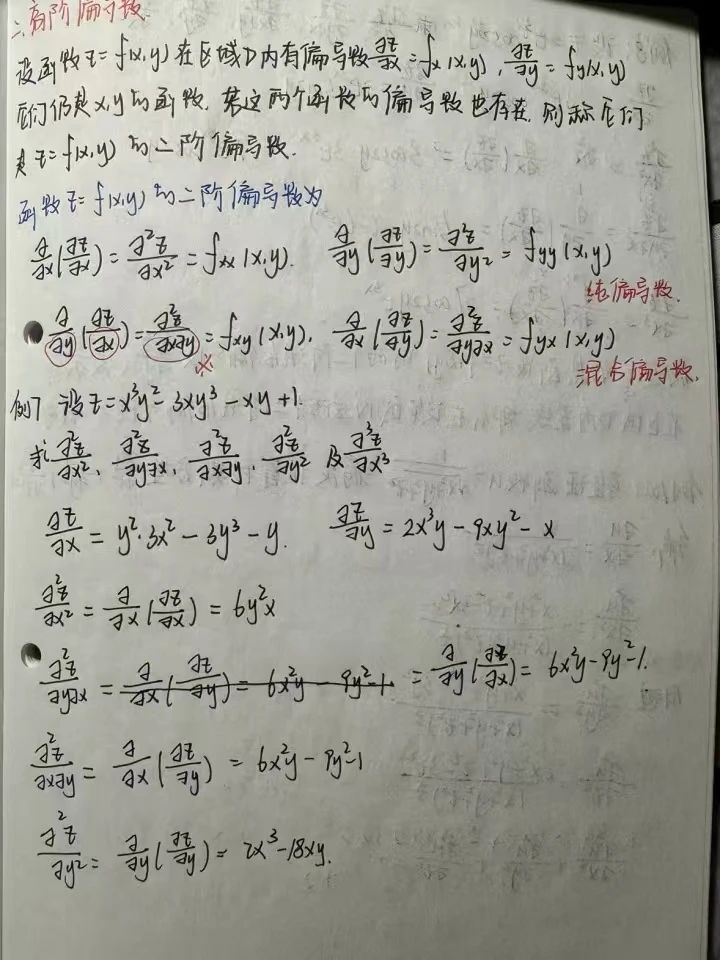 二、高阶偏导数.
设函数z=f(x,y)在区域D内有偏导数∂z/∂x=fx(x,y), ∂z/∂y=fy(x,y)
它们仍是x,y的函数. 若这两个函数的偏导数也存在, 则称它们
是z=f(x,y)的二阶偏导数.
函数z=f(x,y)的二阶偏导数为
∂/∂x(∂z/∂x)=∂²z/∂x²=fxx(x,y). ∂/∂y(∂z/∂y)=∂²z/∂y²=fyy(x,y)
纯偏导数.
∂/∂y(∂z/∂x)=∂²z/∂x∂y=fxy(x,y), ∂/∂x(∂z/∂y)=∂²z/∂y∂x=fyx(x,y)
※
混合偏导数.
例7 设z=x³y²-3xy³-xy+1.
求∂²z/∂x², ∂²z/∂y∂x, ∂²z/∂x∂y, ∂²z/∂y² 及∂³z/∂x³
∂z/∂x=y²·3x²-3y³-y. ∂z/∂y=2x³y-9xy²-x
∂²z/∂x²=∂/∂x(∂z/∂x)=6y²x
∂²z/∂y∂x=∂/∂x(∂z/∂y)=6x²y-9y²-1. =∂/∂y(∂z/∂x)=6x²y-9y²-1.
∂²z/∂x∂y=∂/∂x(∂z/∂y)=6x²y-9y²-1
∂²z/∂y²=∂/∂y(∂z/∂y)=2x³-18xy.